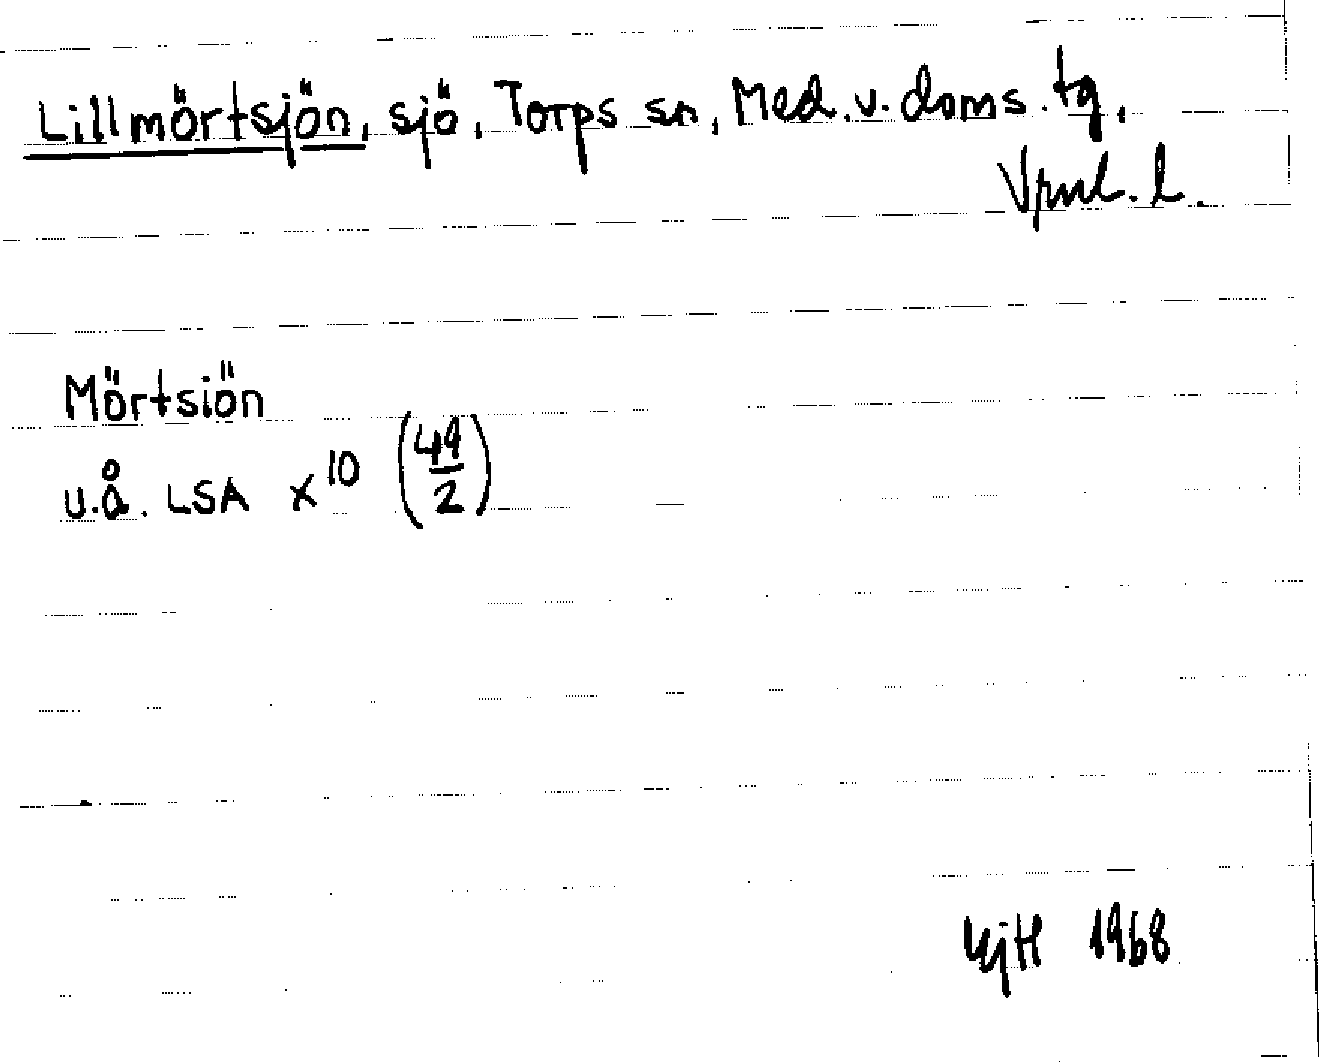 Lillmörtsjön, sjö, Torps sn, Med. v. doms. tg,
Vrnl. l.
Mörtsiön
u.å. LSA x¹⁰ (49/2)
1968